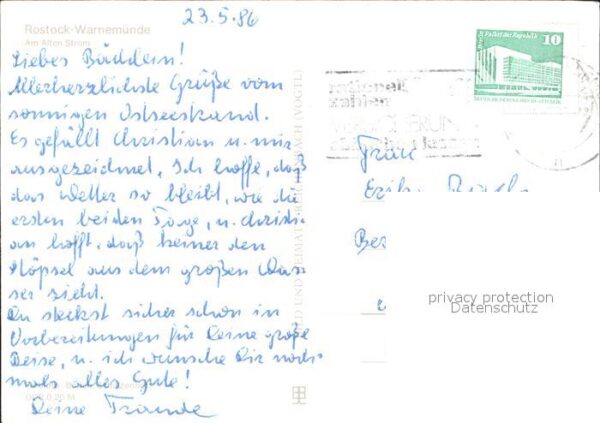 23.5.86
Rostock-Warnemünde
Am Alten Strom
Liebes Bäddein!
Allerherzlichste Grüße vom
sonnigen Ostseestrand.
Es gefällt Christian u. mir
ausgezeichnet. Ich hoffe, daß
das Wetter so bleibt, wie die
ersten beiden Tage, u. Christi-
an hofft, daß keiner den
Stöpsel aus dem großen Was-
ser zieht.
Du steckst sicher schon in
Vorbereitungen für Deine große
Reise, u. ich wünsche Dir noch-
mals alles Gute!
Deine
BILD UND HEIMAT REICHENBACH (VOGTL)
Berlin Palast der Republik
10
rationell
zahlen
Frau
privacy protection
Datenschutz
0,20 M